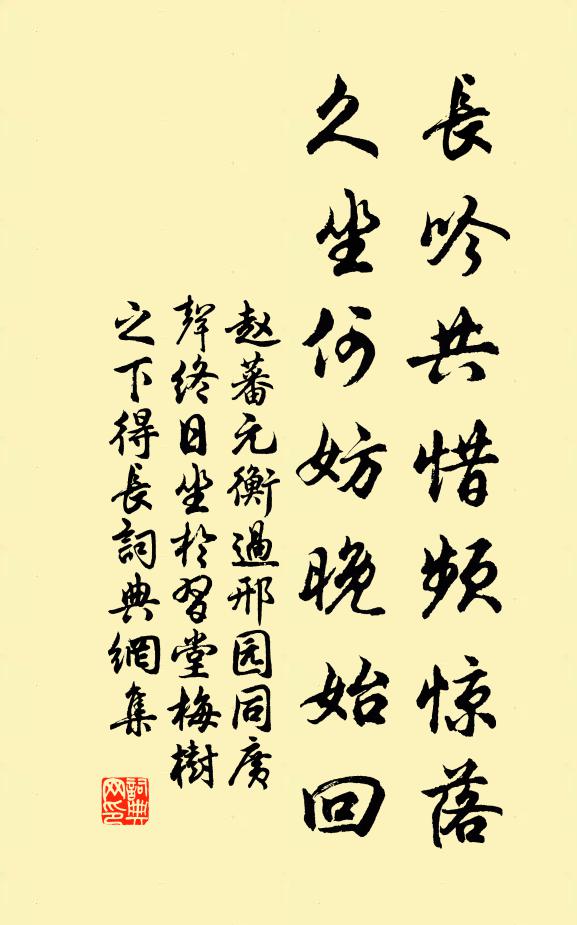 長吟共惜频惊落
久坐何妨晚始回
赵蕃元衡過邢园同廣
聲终日坐於習堂梅樹
之下得長詞典網集
詞典网印